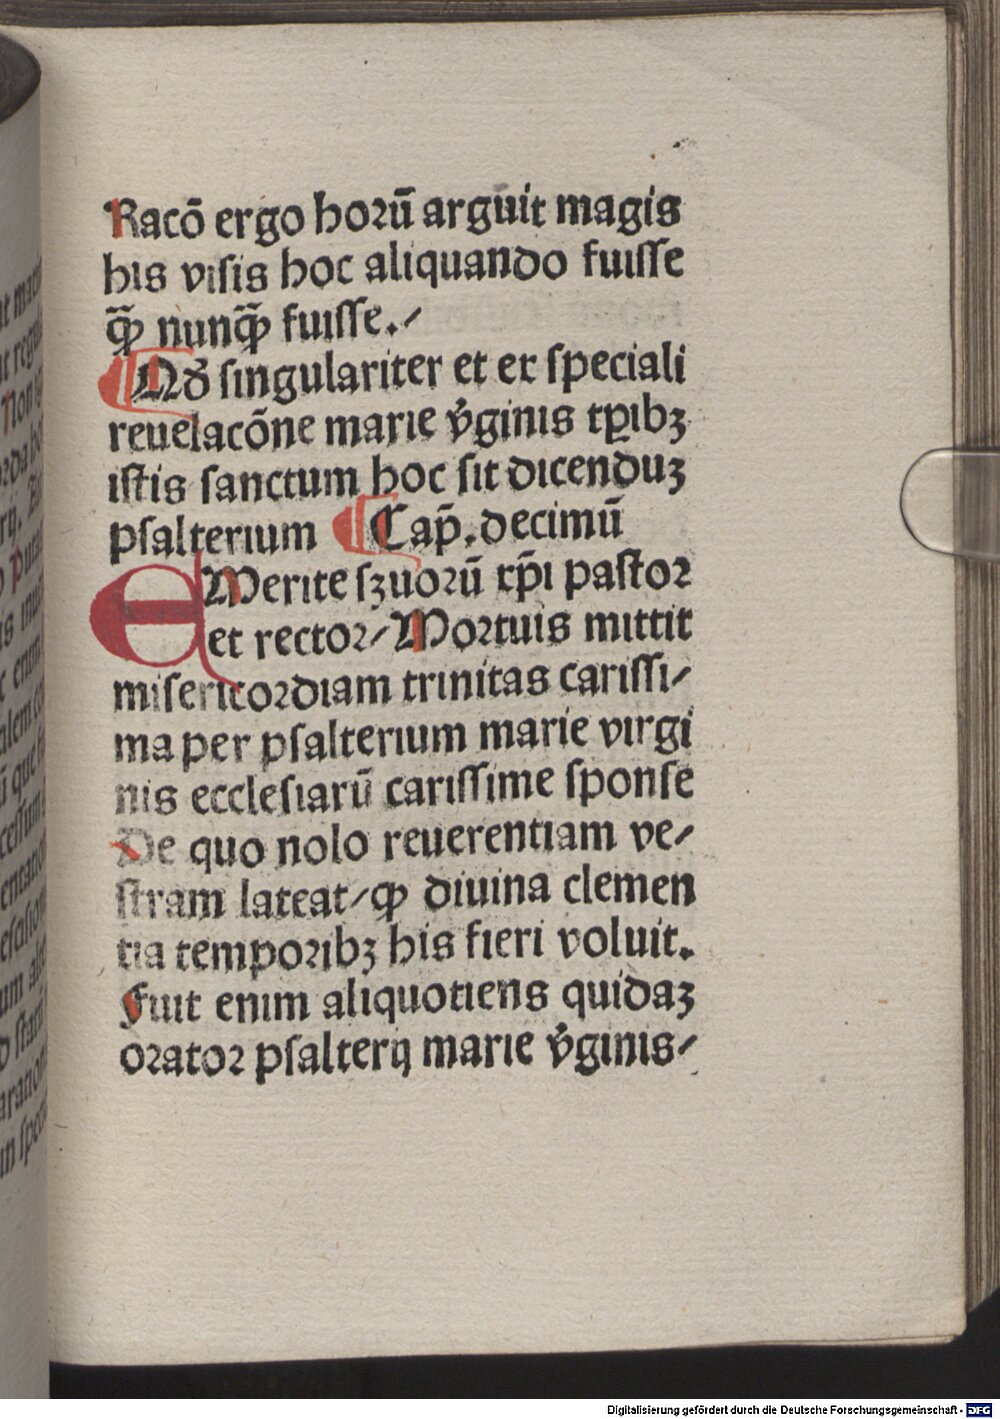 Racō ergo horū arguit magis
his visis hoc aliquando fuisse
qꝫ̄ nunqꝫ̄ fuisse./
¶ Qd̕ singulariter et ex speciali
reuelacōne marie v̕ginis xp̱ibꝫ
istis sanctum hoc sit dicenduꝫ
psalterium ¶ Cap̄. decimū
EMerite sꝫuorū xp̄i pastor
et rector/ Mortuis mittit
misericordiam trinitas carissi/
ma per psalterium marie virgi
nis ecclesiarū carissime sponse
De quo nolo reuerentiam ve/
stram lateat/ ꝙ diuina clemen
tia temporibꝫ his fieri voluit.
Fuit enim aliquotiens quidaꝫ
orator psalterij marie v̕ginis/
Digitalisierung gefördert durch die Deutsche Forschungsgemeinschaft - DFG